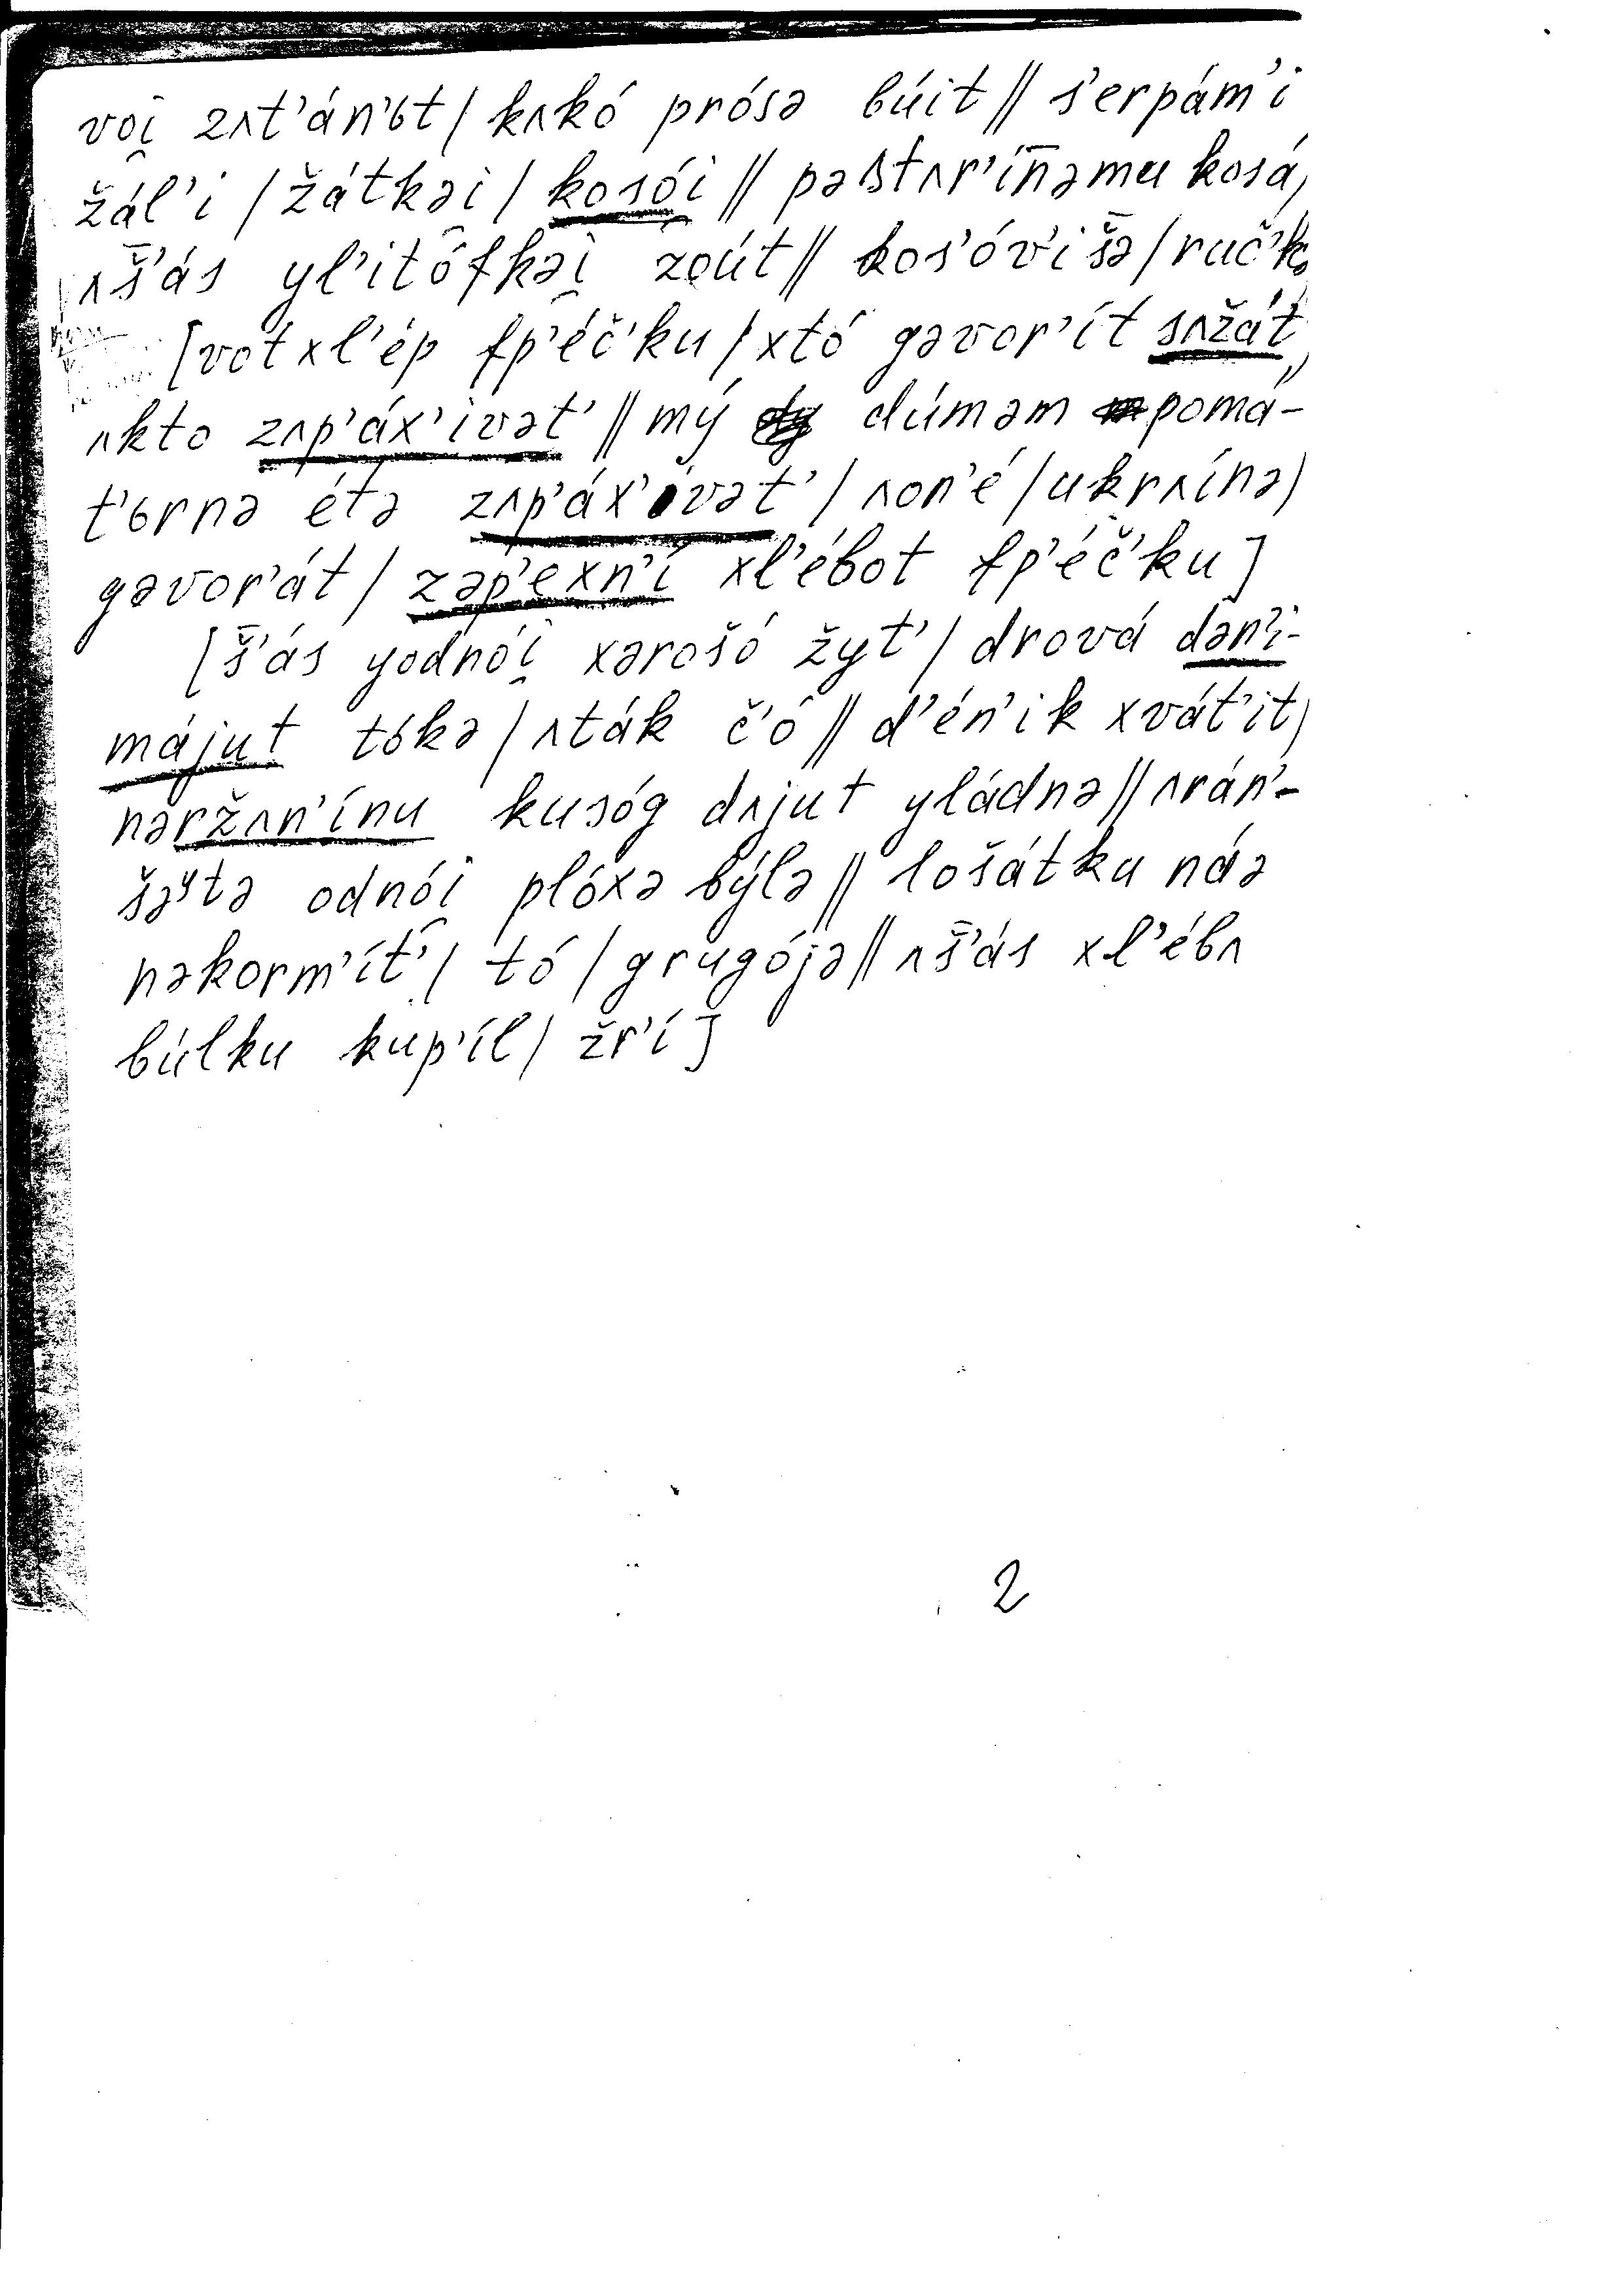 voi̯ zʌt'án'ьt / kʌkó prósə búit // s'erpám'i
žál'i / žátkəi̯ / kosói̯ // pəstʌr'ín̄əmu kosá /
ʌš̄'ás yl'itófkəi̯ zoút // kos'óv'išə / ruč'kə
[vot xl'ép fp'éč'ku / xtó gəvor'ít sʌžát' /
ʌkto zʌp'áx'ivət' // mý dúməm pomá-
t'ьrnə étə zʌp'áx'ivət' / ʌon'é / ukrʌínə /
gəvor'át / zəp'exn'í xl'ébot fp'éč'ku]
[š̄'ás yodnói̯ xərošó žyt' / drová dən'i-
májut tókə / ʌták č'ó // d'én'ik xvát'it /
nəržʌn'ínu kusóg dʌjut yládnə // ʌrán'-
šəʸtə odnói̯ plóxə býlə // lošátku náə
nəkorm'ít' / tó / grugójə // ʌš̄'ás xl'ébʌ
búlku kup'íl / žr'í]
2